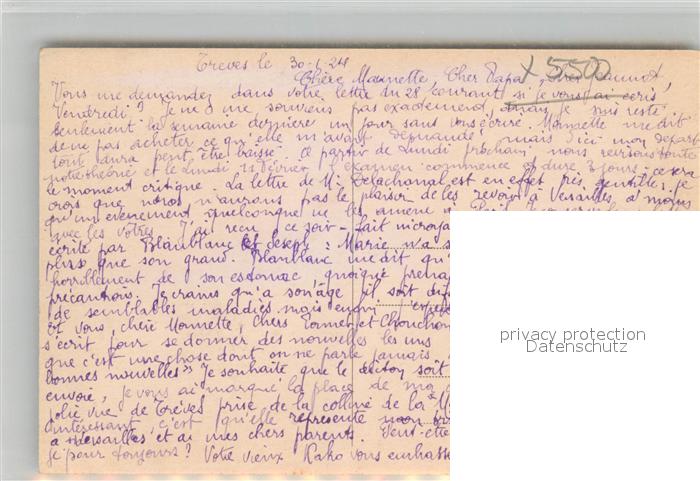 Treves le 30-1-24
Chère Mannette, Cher Papa,
x 5500
Vous me demandez dans votre lettre du 28 courant si je vous ai écris
Vendredi? Je ne me souviens pas exactement, mais je suis resté
seulement la semaine dernière un jour sans vous écrire. Monnette me dit
de ne pas acheter ce qu'elle m'avait demandé, mais d'ici mon départ
tout aura peut être baissé. A partir de Lundi prochain nous revisons toute
et le Lundi 11 Février l'examen commence et dure 3 jours; ce sera
le moment critique. La lettre de Mr Delachanal est en effet très gentille. je
crois que nous n'aurons pas le plaisir de les revoir à Versailles, à moins
qu'un évènement quelconque ne les amène
avec les vôtres. J'ai reçu ce soir - fait incroyable
écrite par Blanblanc et Joseph: Marie n'a
plus que son grand. Blanblanc me dit qu'
horriblement de son estomac, quoique prena
précautions. Je crains qu'à son âge il soit dif
de semblables maladies mais enfin
et vous, chère Monnette, Chers et Chouchou
s'écrit pour se donner des nouvelles les uns
que c'est une chose dont on ne parle jamais
bonnes nouvelles" Je souhaite que le dicton soit
envoie, je vous ai marqué la place de ma
jolie vue de Trèves prise de la colline de la
intéressant c'est qu'elle représente
à Versailles et ai mes chers parents. Peut-être
je pour toujours? Votre vieux Kako vous embrasse
privacy protection
Datenschutz